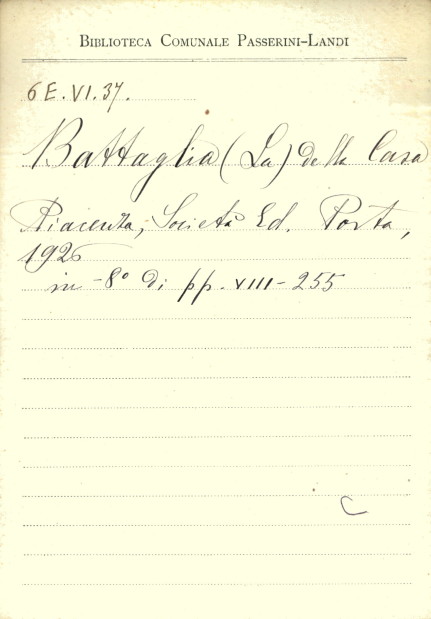 BIBLIOTECA COMUNALE PASSERINI-LANDI
6 E. VI. 37.
Battaglia (La) della Casa
Piacenza, Società Ed. Porta,
1926
in -8° di pp. VIII - 255
C